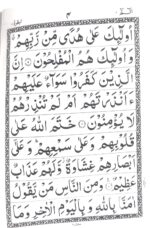 اُولٰٓئِكَ عَلٰى هُدًى مِّنْ رَّبِّهِمْ
وَاُولٰٓئِكَ هُمُ الْمُفْلِحُوْنَ ۝ اِنَّ
الَّذِيْنَ كَفَرُوْا سَوَآءٌ عَلَيْهِمْ
ءَاَنْذَرْتَهُمْ اَمْ لَمْ تُنْذِرْهُمْ
لَا يُؤْمِنُوْنَ ۝ خَتَمَ اللّٰهُ عَلٰى
قُلُوْبِهِمْ وَعَلٰى سَمْعِهِمْ وَعَلٰٓى
اَبْصَارِهِمْ غِشَاوَةٌ وَّلَهُمْ عَذَابٌ
عَظِيْمٌ ۝ وَمِنَ النَّاسِ مَنْ يَّقُوْلُ
اٰمَنَّا بِاللّٰهِ وَبِالْيَوْمِ الْاٰخِرِ وَمَا